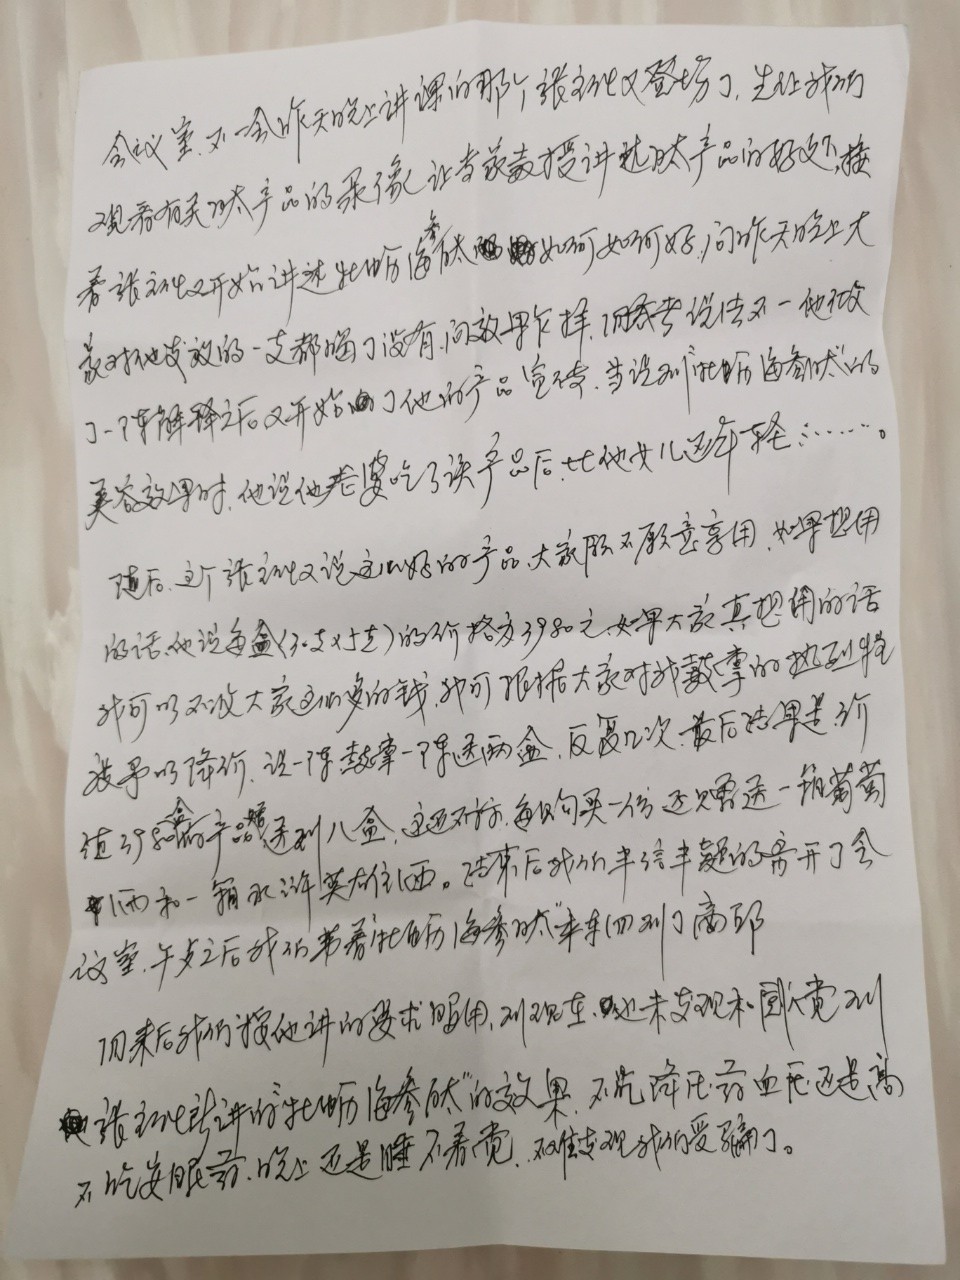 会议室，不一会昨天晚上讲课的那个张主任又登场了，先让我们
观看有关肽产品的录像，让专家教授讲述肽产品的好处，接
着张主任又开始讲述牡蛎海参肽如何如何好，问昨天晚上大
家对他发放的一支都喝了没有，问效果怎样，回答者说法不一他做
了一阵解释之后又开始了他的产品宣传，当说到"牡蛎海参肽"的
美容效果时，他说他老婆吃了该产品后，比他女儿还年轻……。
随后，这个张主任又说这么好的产品，大家愿不愿意享用，如果想用
的话，他说每盒(30支×5克)的价格为3980元，如果大家真想用的话
我可以不收大家这么多的钱，我可根据大家对我鼓掌的热烈程
度予以降价，说一阵鼓掌一阵送两盒，反复几次，最后结果是，价
值3980盒的产品赠送到八盒，这还不行，每购买一份还赠送一箱葡萄
酒和一箱水浒英雄酒。结束后我们半信半疑的离开了会
议室，午点之后我们带着牡蛎海参肽"乘车回到了商邱
回来后我们按他讲的要求服用，到现在，还未发现和感觉到
张主任所讲的"牡蛎海参肽"的效果，不吃降压药血压还是高
不吃安眠药，晚上还是睡不着觉，才发现我们受骗了。